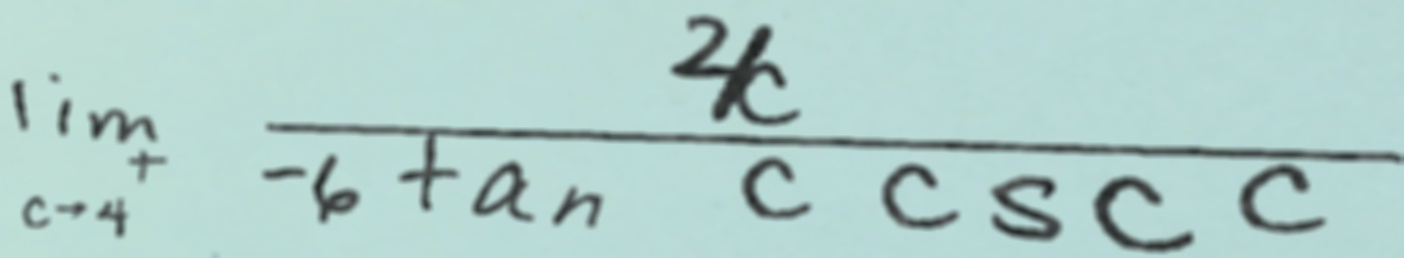 \lim_{c \to 4^+} \frac{2/c}{-6 \tan c \csc c}